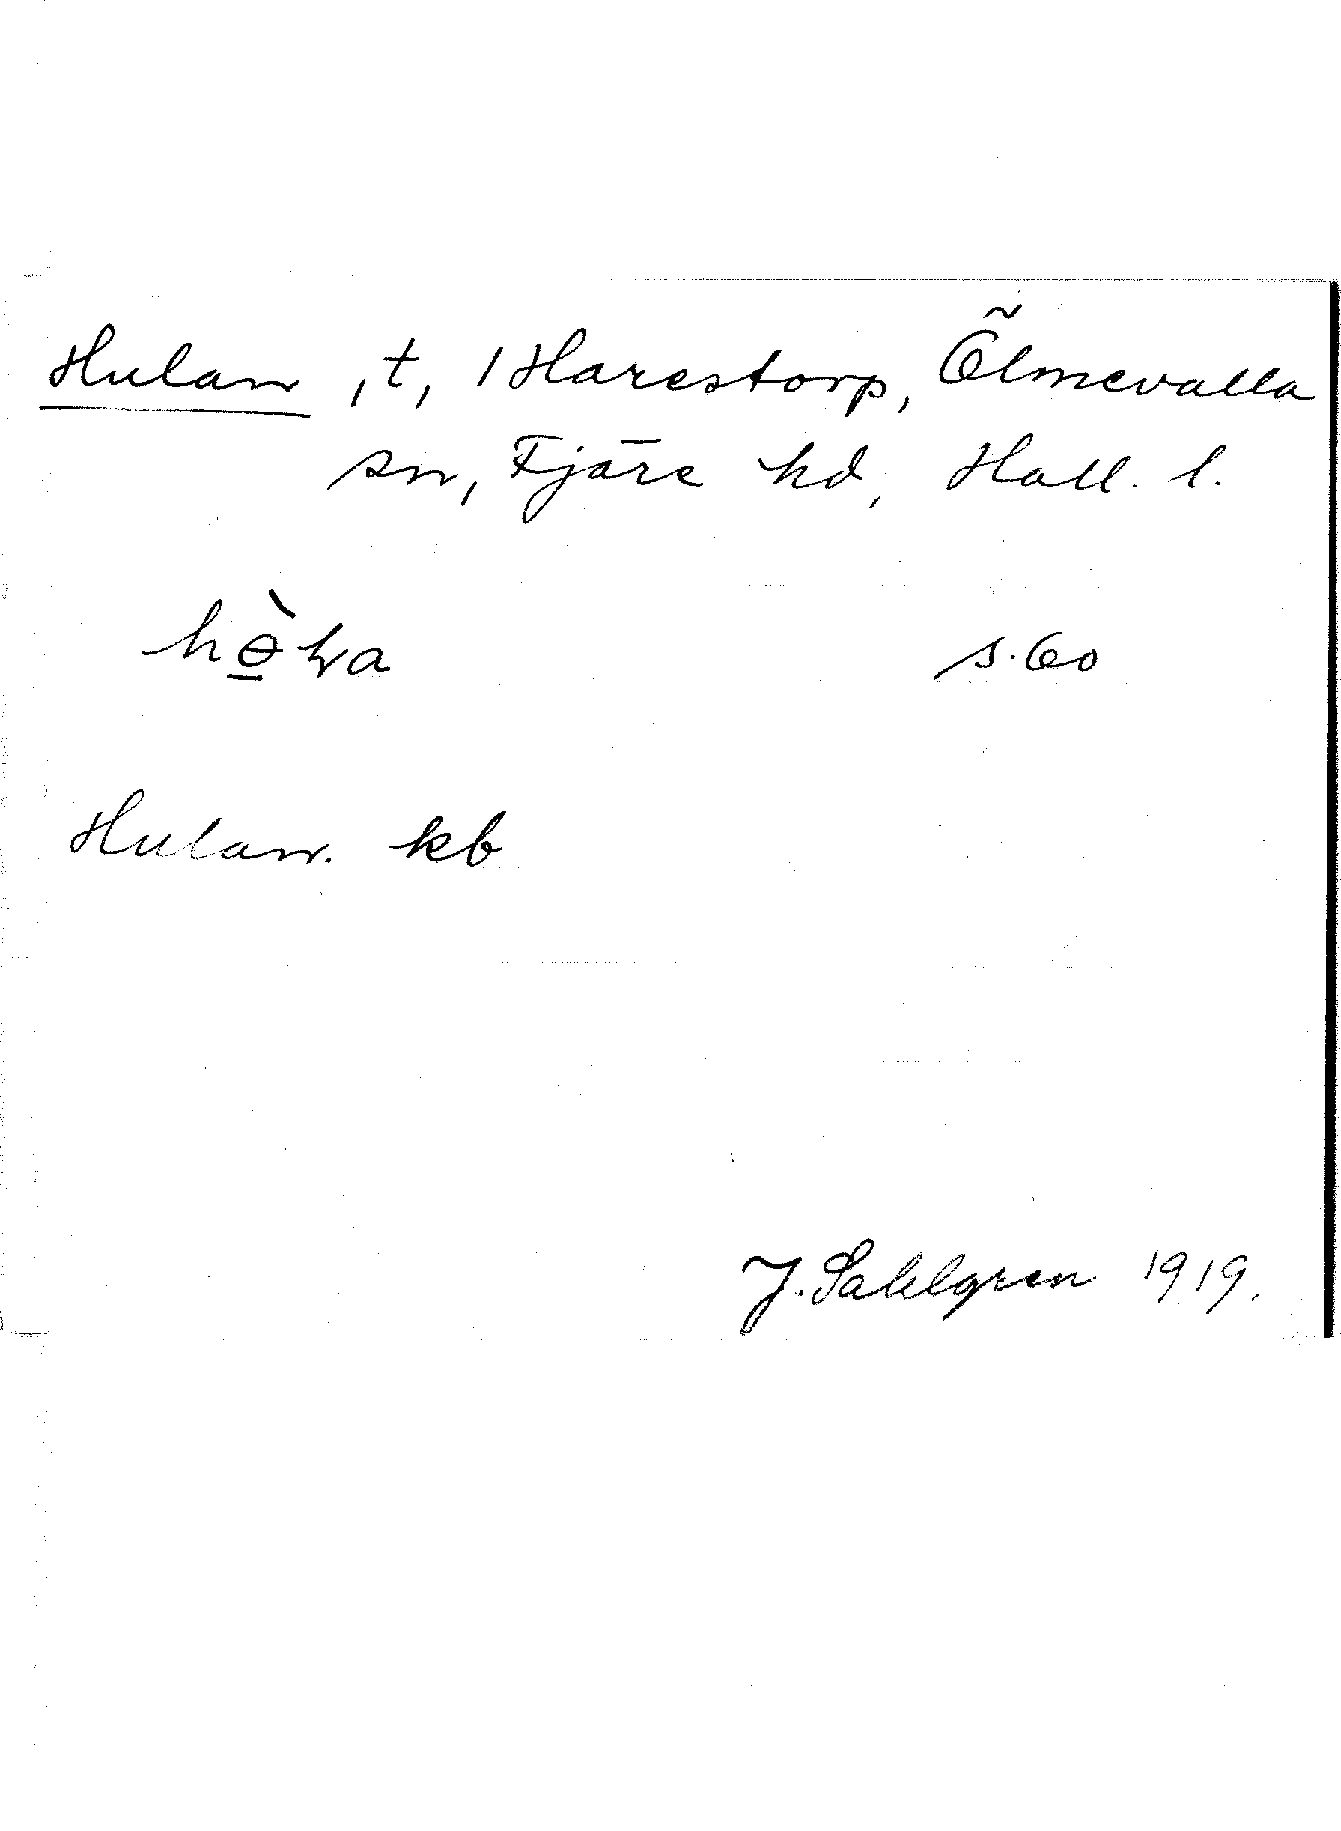 Hulan, t, 1 Harestorp, Ölmevalla
sn, Fjäre hd, Hall. l.
s. 60
Hulan. kb
J. Sahlgren 1919.